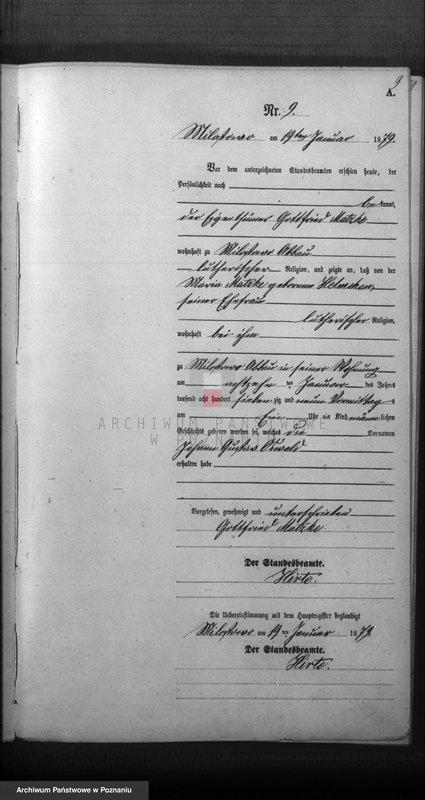 9
A.
Nr. 9.
Milostowo am 19ten Januar 1879.
Vor dem unterzeichneten Standesbeamten erschien heute, der
Persönlichkeit nach
be kannt,
der Eigenthümer Gottfried Matzke
wohnhaft zu Milostowo Abbau
lutherischer Religion, und zeigte an, daß von der
Maria Matzke geborenen
seiner Ehefrau
lutherischer Religion,
wohnhaft bei ihm
zu Milostowo Abbau in seiner Wohnung
am achtzehn ten Januar des Jahres
tausend acht hundert sieben zig und neun Vormittag s
um Uhr ein Kind männlichen
Geschlechts geboren worden sei, welches die Vornamen
Johann Gustav Oswald
erhalten habe
Vorgelesen, genehmigt und unterschrieben
Gottfried Matzke.
Der Standesbeamte.
Hirte.
Die Uebereinstimmung mit dem Hauptregister beglaubigt
Milostowo am 19 ten Januar 1879.
Der Standesbeamte.
Hirte.
ARCHIWUM PAŃSTWOWE
W POZNANIU
Archiwum Państwowe w Poznaniu